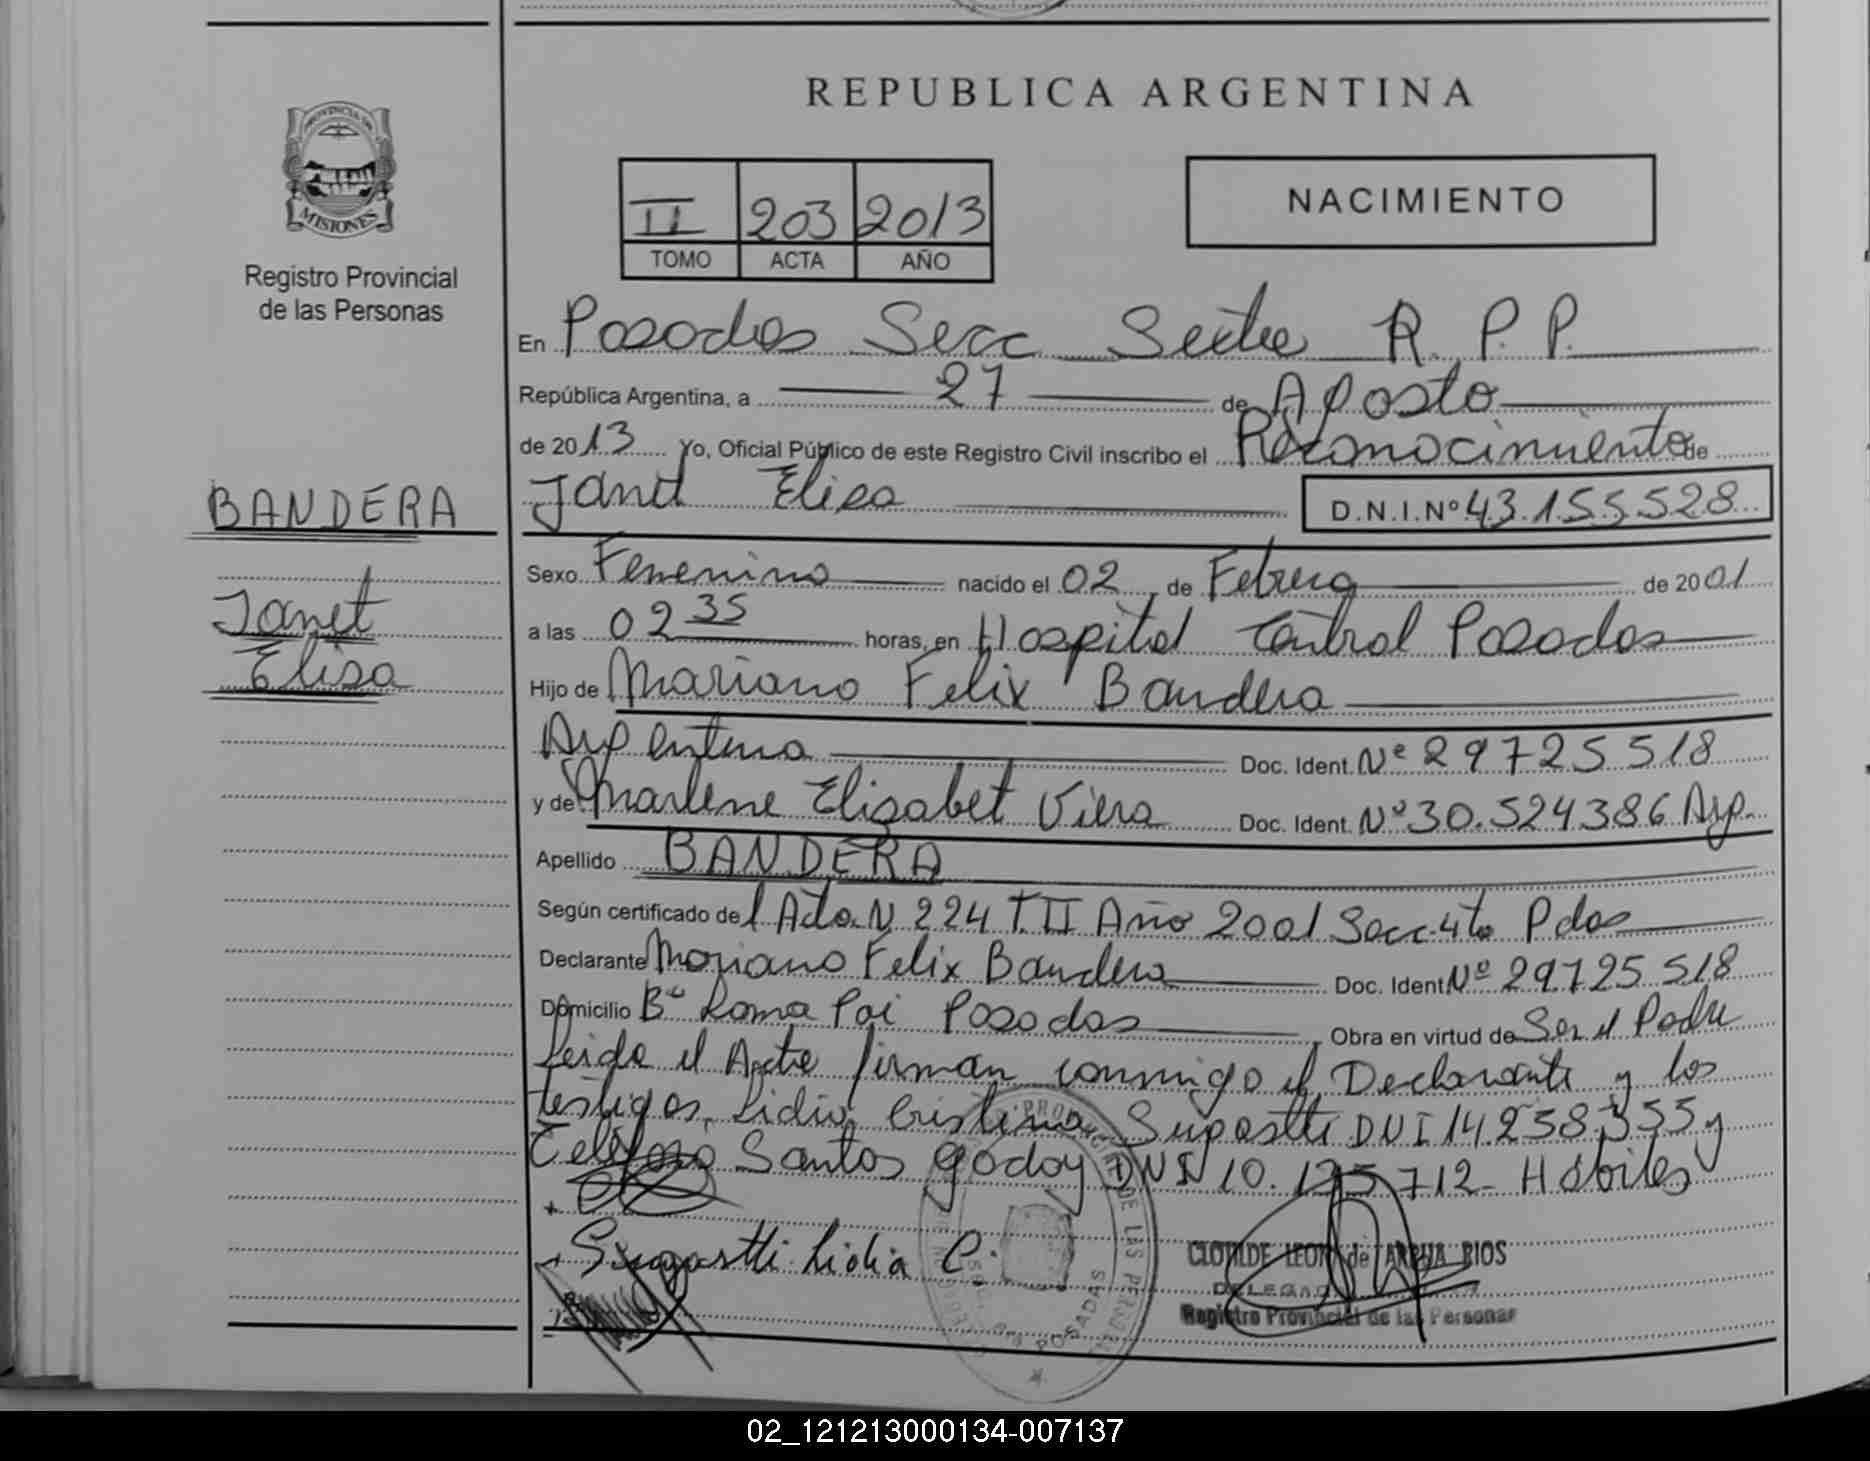 REPUBLICA ARGENTINA
PROVINCIA DE
MISIONES
Registro Provincial
de las Personas
II 203 2013
TOMO ACTA AÑO
NACIMIENTO
En Posadas Secc Septe R.P.P.
República Argentina, a 27 de Agosto
de 2013 Yo, Oficial Público de este Registro Civil inscribo el Reconocimiento de
BANDERA
Janet Elisa D.N.I.Nº 43.155.528
Sexo Femenino nacido el 02 de Febrero de 2001
Janet
Elisa
a las 02 35 horas, en Hospital Central Posadas
Hijo de Mariano Felix Bandera
Argentino Doc. Ident. Nº 29725518
y de Marlene Elisabet Viera Doc. Ident. Nº 30.524386 Arg.
Apellido BANDERA
Según certificado del Acta N 224 T.II Año 2001 Secc 4ta Pdas
Declarante Mariano Felix Bandera Doc. Ident. Nº 29725518
Domicilio Bº Roma Poi Posadas Obra en virtud de Ser el Padre
Leida el Acta firman conmigo el Declarante y los
testigos Lidia Cristina Sugastti DNI 14.258.355 y
Santos Godoy DNI 10.125.712- Hábiles
Sugastti Lidia C.
CLOTILDE LEON de
DELEGADA
Registro Provincial de las Personas
POSADAS
02_121213000134-007137